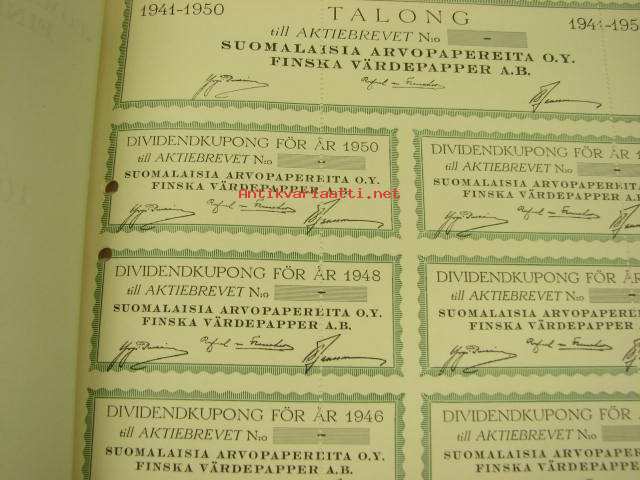 1941-1950 TALONG 1941-195
till AKTIEBREVET N:o -
SUOMALAISIA ARVOPAPEREITA O.Y.
FINSKA VÄRDEPAPPER A.B.
DIVIDENDKUPONG FÖR ÅR 1950
till AKTIEBREVET N:o -
SUOMALAISIA ARVOPAPEREITA O.Y.
FINSKA VÄRDEPAPPER A.B.
Antikvariaatti.net
DIVIDENDKUPONG FÖR ÅR 1
till AKTIEBREVET N:o -
SUOMALAISIA ARVOPAPEREIT
FINSKA VÄRDEPAPPER A.B
DIVIDENDKUPONG FÖR ÅR 1948
till AKTIEBREVET N:o -
SUOMALAISIA ARVOPAPEREITA O.Y.
FINSKA VÄRDEPAPPER A.B.
DIVIDENDKUPONG FÖR ÅR
till AKTIEBREVET N:o -
SUOMALAISIA ARVOPAPEREITA
FINSKA VÄRDEPAPPER A.
DIVIDENDKUPONG FÖR ÅR 1946
till AKTIEBREVET N:o -
SUOMALAISIA ARVOPAPEREITA O.Y.
FINSKA VÄRDEPAPPER A.B.
DIVIDENDKUPONG FÖR ÅR
till AKTIEBREVET N:o
SUOMALAISIA ARVOPAPEREI
FINSKA VÄRDEPAPPER